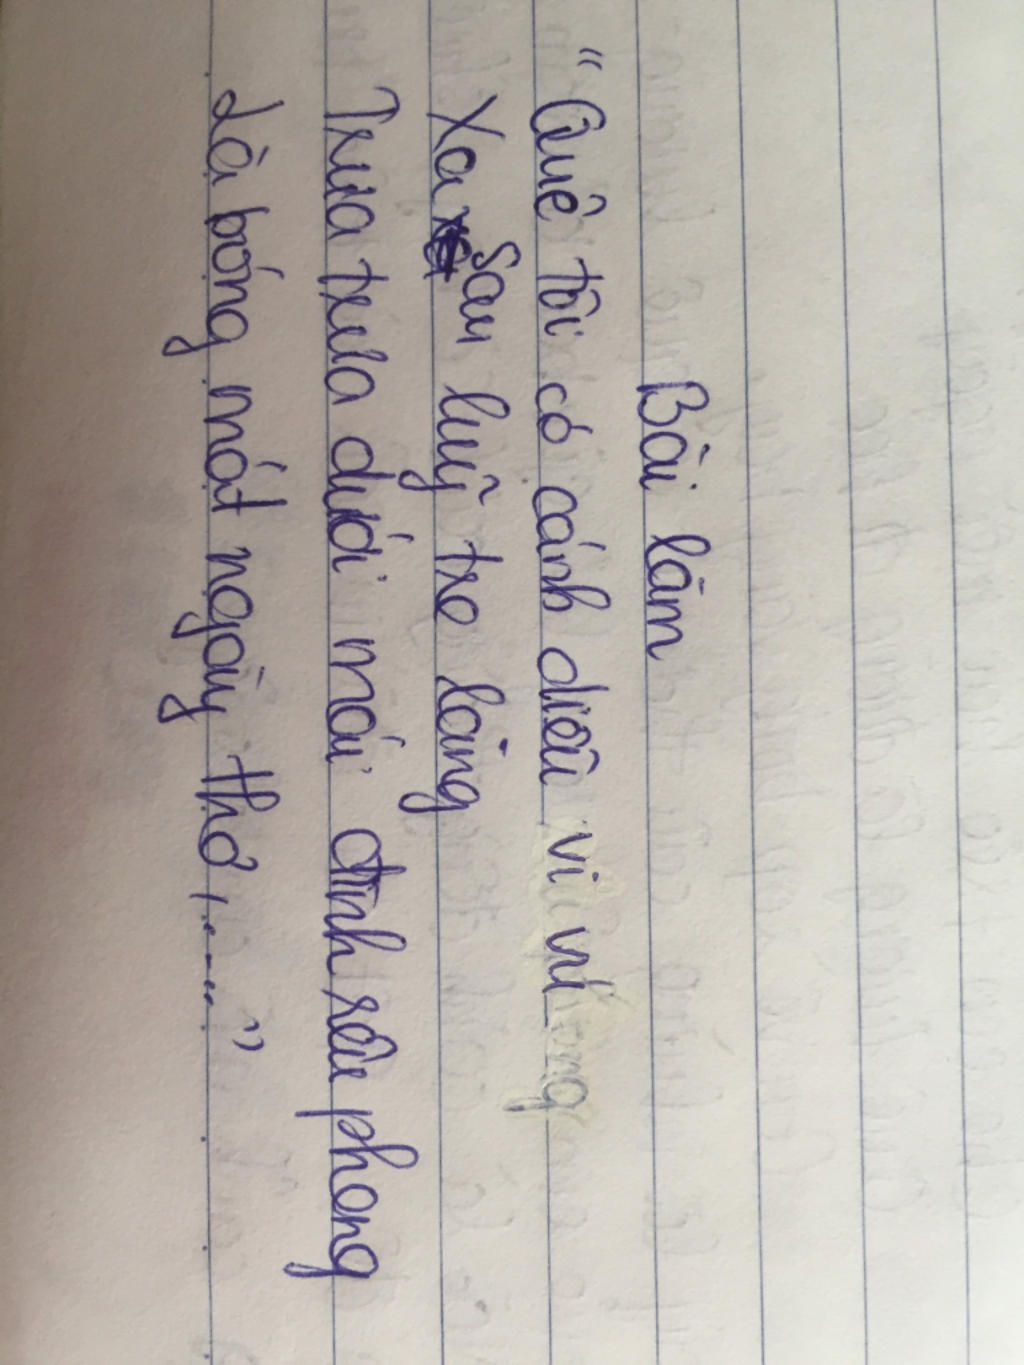 Bài làm
"Quê tôi có cánh diều vi vu
Xa sau luỹ tre làng
Trưa trưa dưới mái đình rêu phong
Là bóng mát ngày thơ, ...."